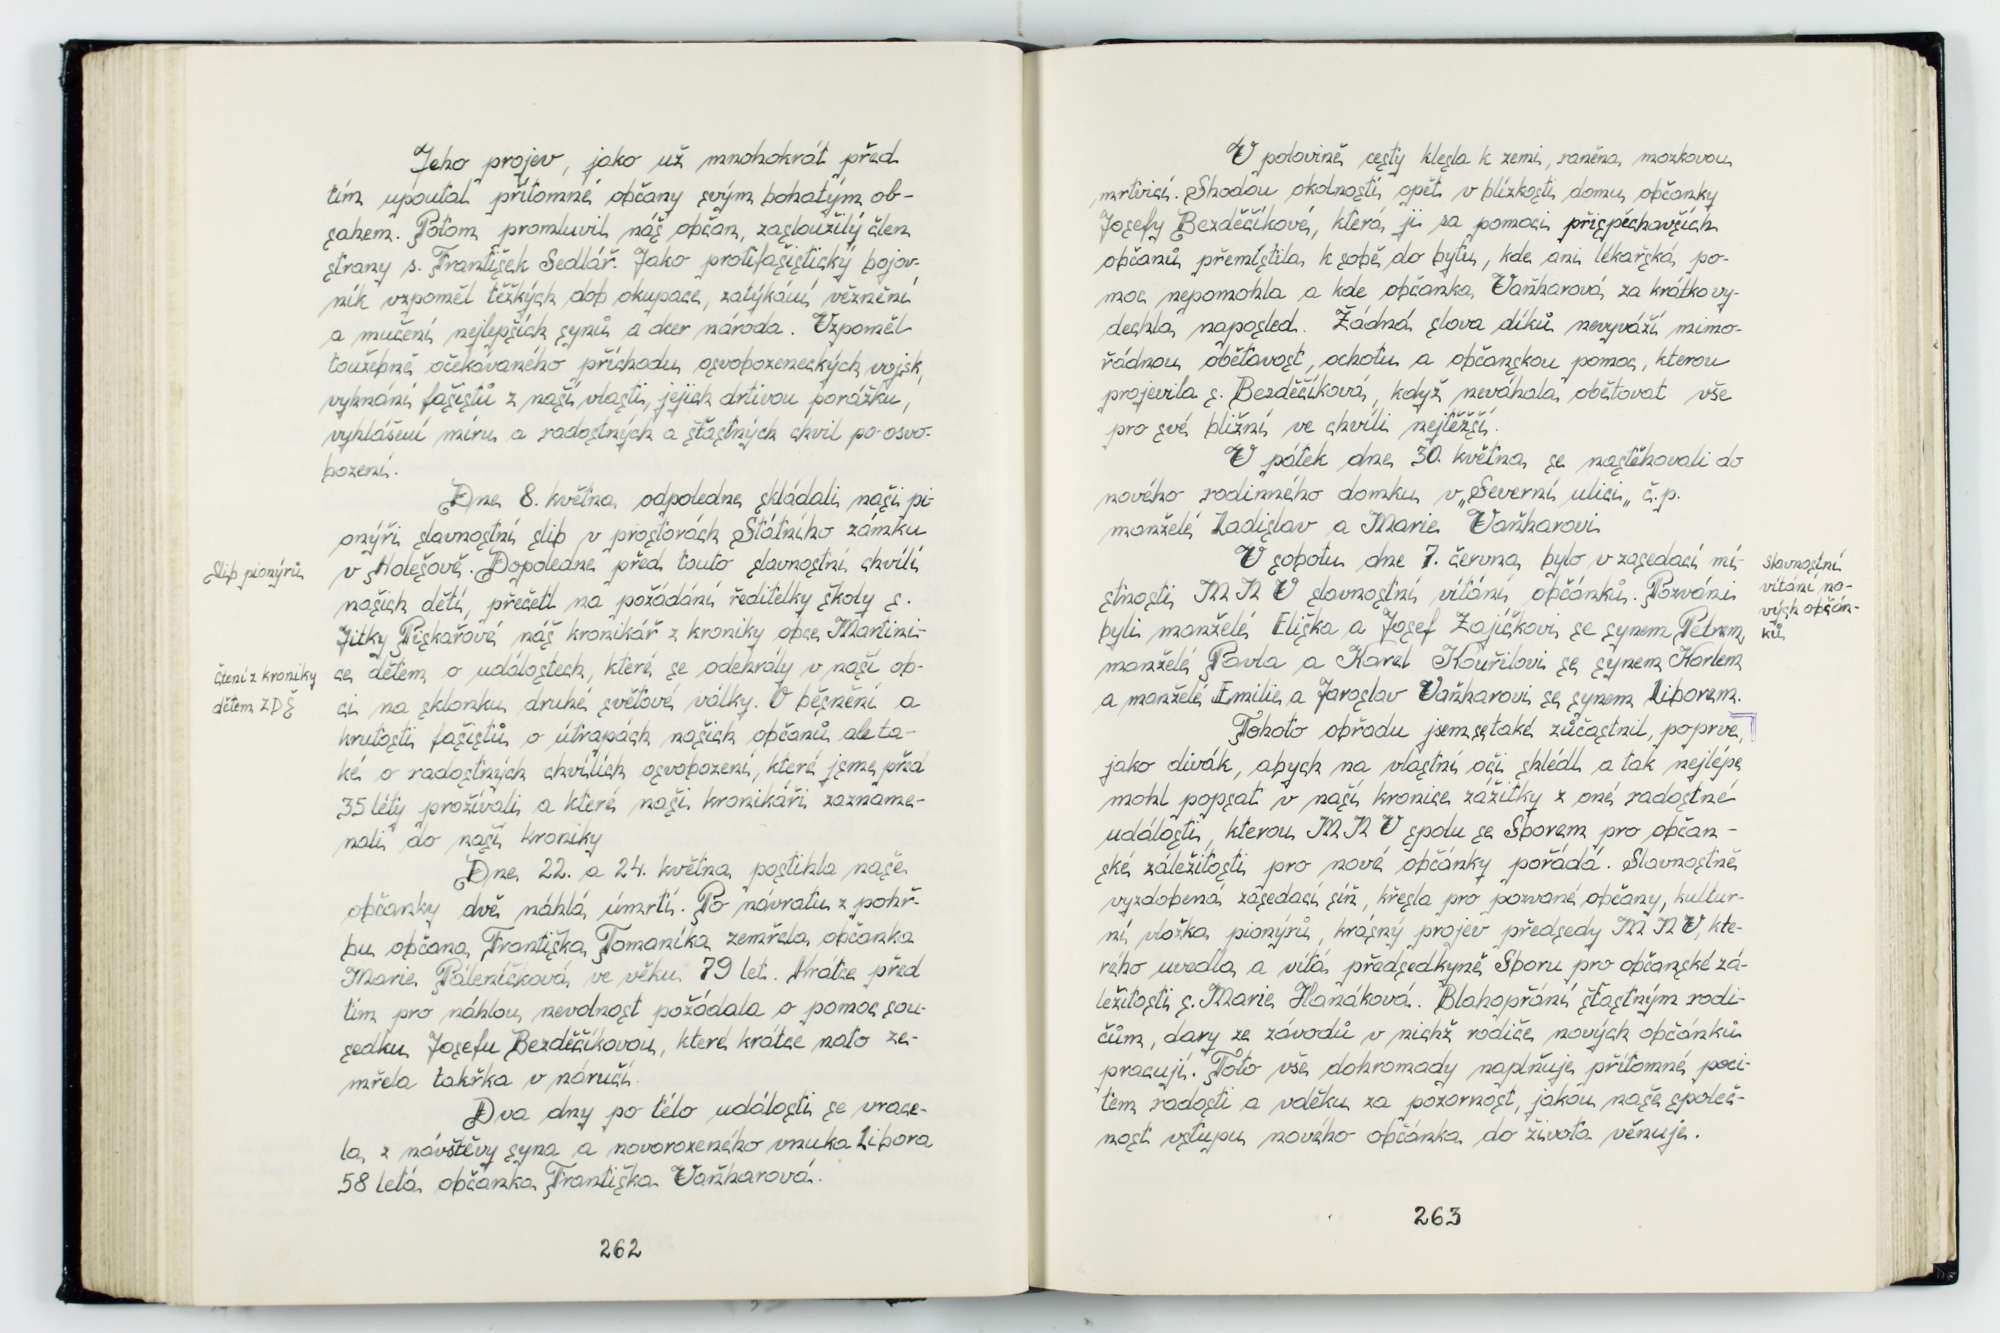 Jeho projev, jako už mnohokrát před
tím upoutal přítomné občany svým bohatým ob-
sahem. Potom promluvil náš občan, zasloužilý člen
strany s. František Sedlář. Jako protifašistický bojov-
ník vzpoměl těžkých dob okupace, zatýkání, věznění
a mučení nejlepších synů a dcer národa. Vzpoměl
toužebně očekávaného příchodu osvobozeneckých vojsk,
vyhnání fašistů z naší vlasti, jejich drtivou porážku,
vyhlášení míru a radostných a šťastných chvil po osvo-
bození.
Dne 8. května odpoledne skládali naši pi-
onýři slavnostní slib v prostorách Státního zámku
Slib pionýrů
v Holešově. Dopoledne před touto slavnostní chvílí
našich dětí, přečetl na požádání ředitelky školy s.
Jitky Piskařové náš kronikář z kroniky obce Martini-
čtení z kroniky
dětem ZDŠ
ce dětem o událostech, které se odehrály v naší ob-
ci na sklonku druhé světové války. O běsnění a
krutosti fašistů o útrapách našich občanů ale ta-
ké o radostných chvílích osvobození, které jsme před
35 léty prožívali a které naši kronikáři zazname-
nali do naší kroniky
Dne 22. a 24. května postihla naše
občanky dvě náhlá úmrtí. Po návratu z pohř-
bu občana Františka Tomaníka zemřela občanka
Marie Páleníčková ve věku 79 let. Krátce před
tím pro náhlou nevolnost požádala o pomoc sou-
sedku Josefu Bezděčíkovou, které krátce nato ze-
mřela takřka v náručí.
Dva dny po této události se vrace-
la z návštěvy syna a novorozeného vnuka Libora
58 letá občanka Františka Vaňharová.
262
V polovině cesty klesla k zemi, raněna mozkovou
mrtvicí. Shodou okolností opět v blízkosti domu občanky
Josefy Bezděčíkové, která ji za pomoci přispěchavších
občanů přemístila k sobě do bytu, kde ani lékařská po-
moc nepomohla a kde občanka Vaňharová za krátko vy-
dechla naposled. Žádná slova díků nevyváží mimo-
řádnou obětavost, ochotu a občanskou pomoc, kterou
projevila s. Bezděčíková, když neváhala obětovat vše
pro své bližní ve chvíli nejtěžší.
V pátek dne 30. května se nastěhovali do
nového rodinného domku v „Severní ulici„ č.p.
manželé Ladislav a Marie Vaňharovi
V sobotu dne 7. června bylo v zasedací mí-
stnosti MNV slavnostní vítání občánků. Pozváni
byli manželé Eliška a Josef Zajíčkovi se synem Petrem,
manželé Pavla a Karel Kouřilovi se synem Karlem
a manželé Emilie a Jaroslav Vaňharovi se synem Liborem.
Slavnostní
vítání no-
vých občán-
ků
Tohoto obřadu jsem se také zůčastnil, poprve,
jako divák, abych na vlastní oči shlédl a tak nejlépe
mohl popsat v naší kronice zážitky z oné radostné
události, kterou MNV spolu se Sborem pro občan-
ské záležitosti pro nové občánky pořádá. Slavnostně
vyzdobená zasedací síň, křesla pro pozvané občany, kultur-
ní vložka pionýrů, krásný projev předsedy MNV, kte-
rého uvedla a vítá předsedkyně Sboru pro občanské zá-
ležitosti s. Marie Hanáková. Blahopřání šťastným rodi-
čům, dary ze závodů v nichž rodiče nových občánků
pracují. Toto vše dohromady naplňuje přítomné poci-
tem radosti a vděku za pozornost, jakou naše společ-
nost vstupu nového občánka do života věnuje.
263